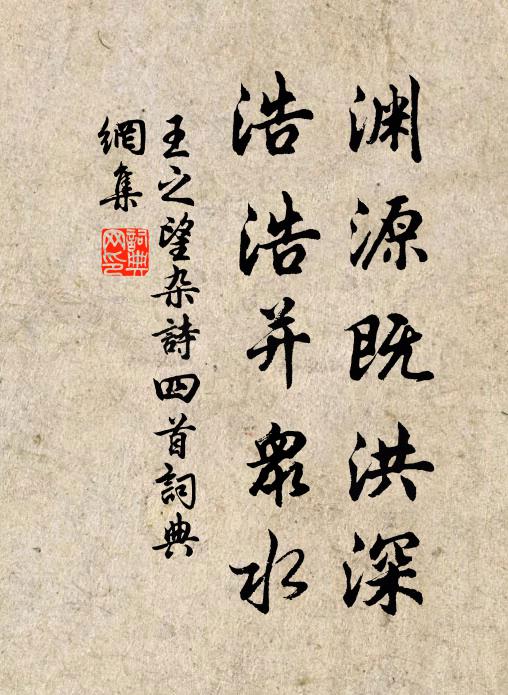 渊源既洪深
浩浩并衆水
王之望杂詩四首詞典
網集
詞典
网印